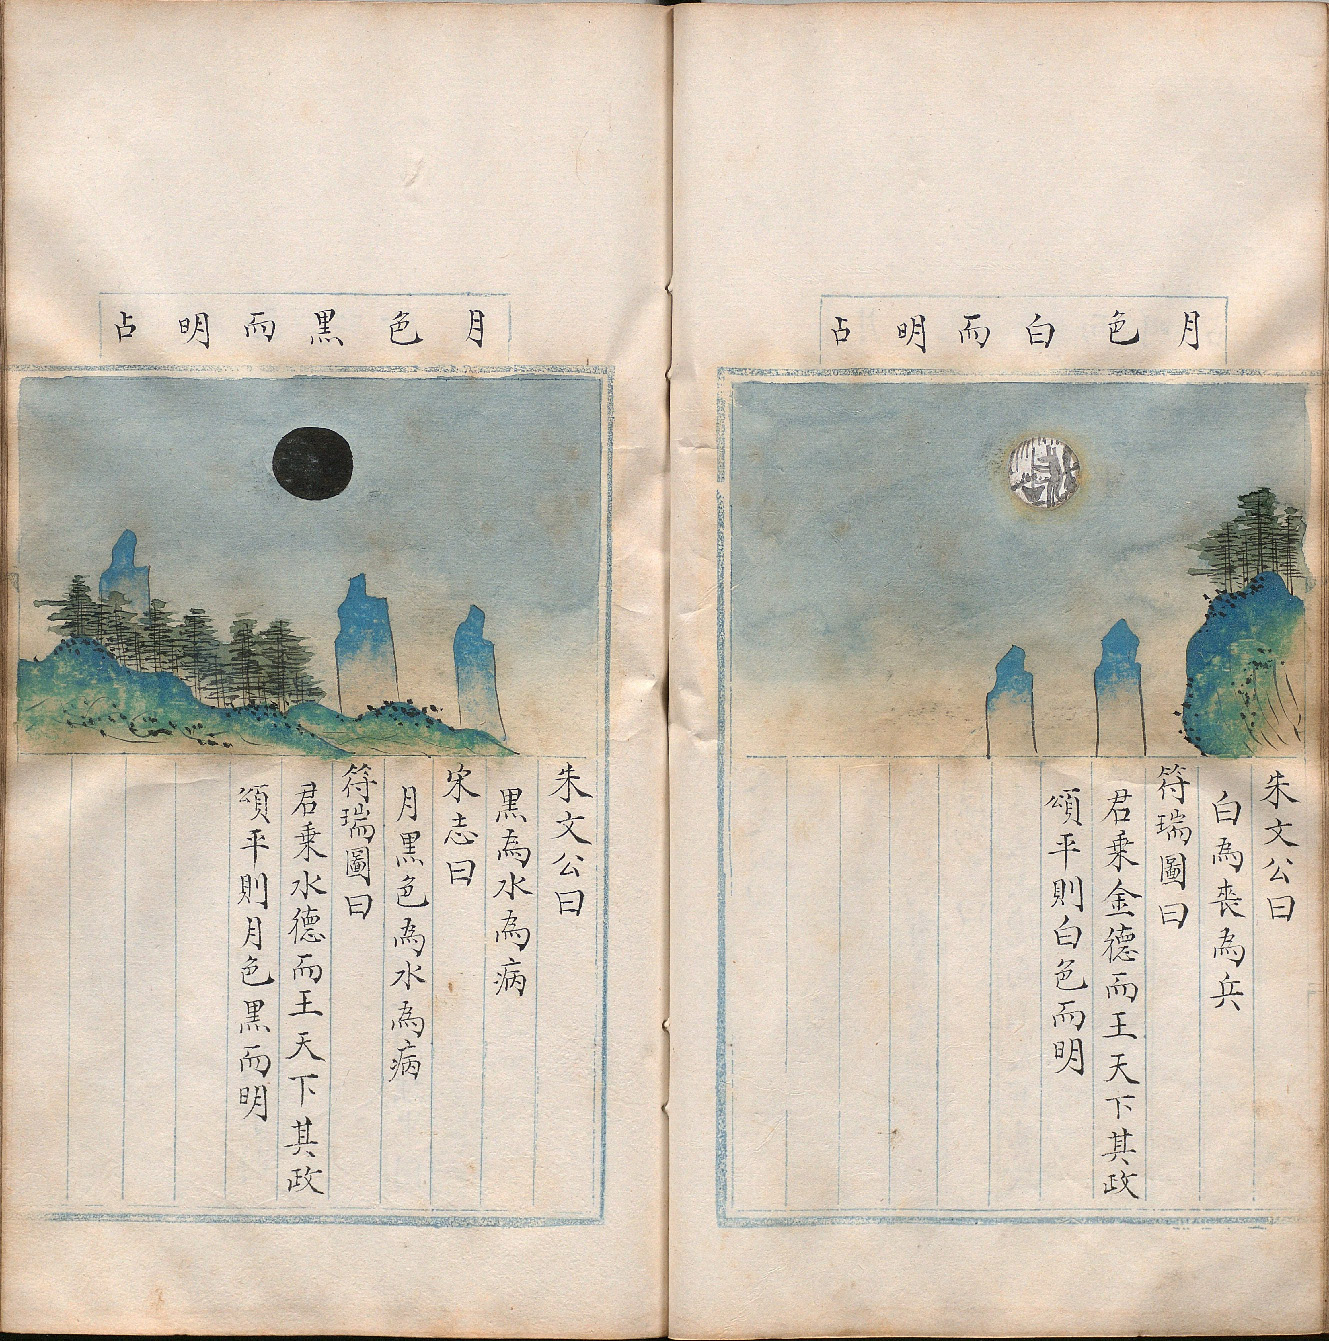 月色白而明占
朱文公曰
白為喪為兵
符瑞圖曰
君乗金德而王天下其政
頌平則白色而明
月色黑而明占
朱文公曰
黒為水為病
宋志曰
月黒色為水為病
符瑞圖曰
君乗水德而王天下其政
頌平則月色黒而明